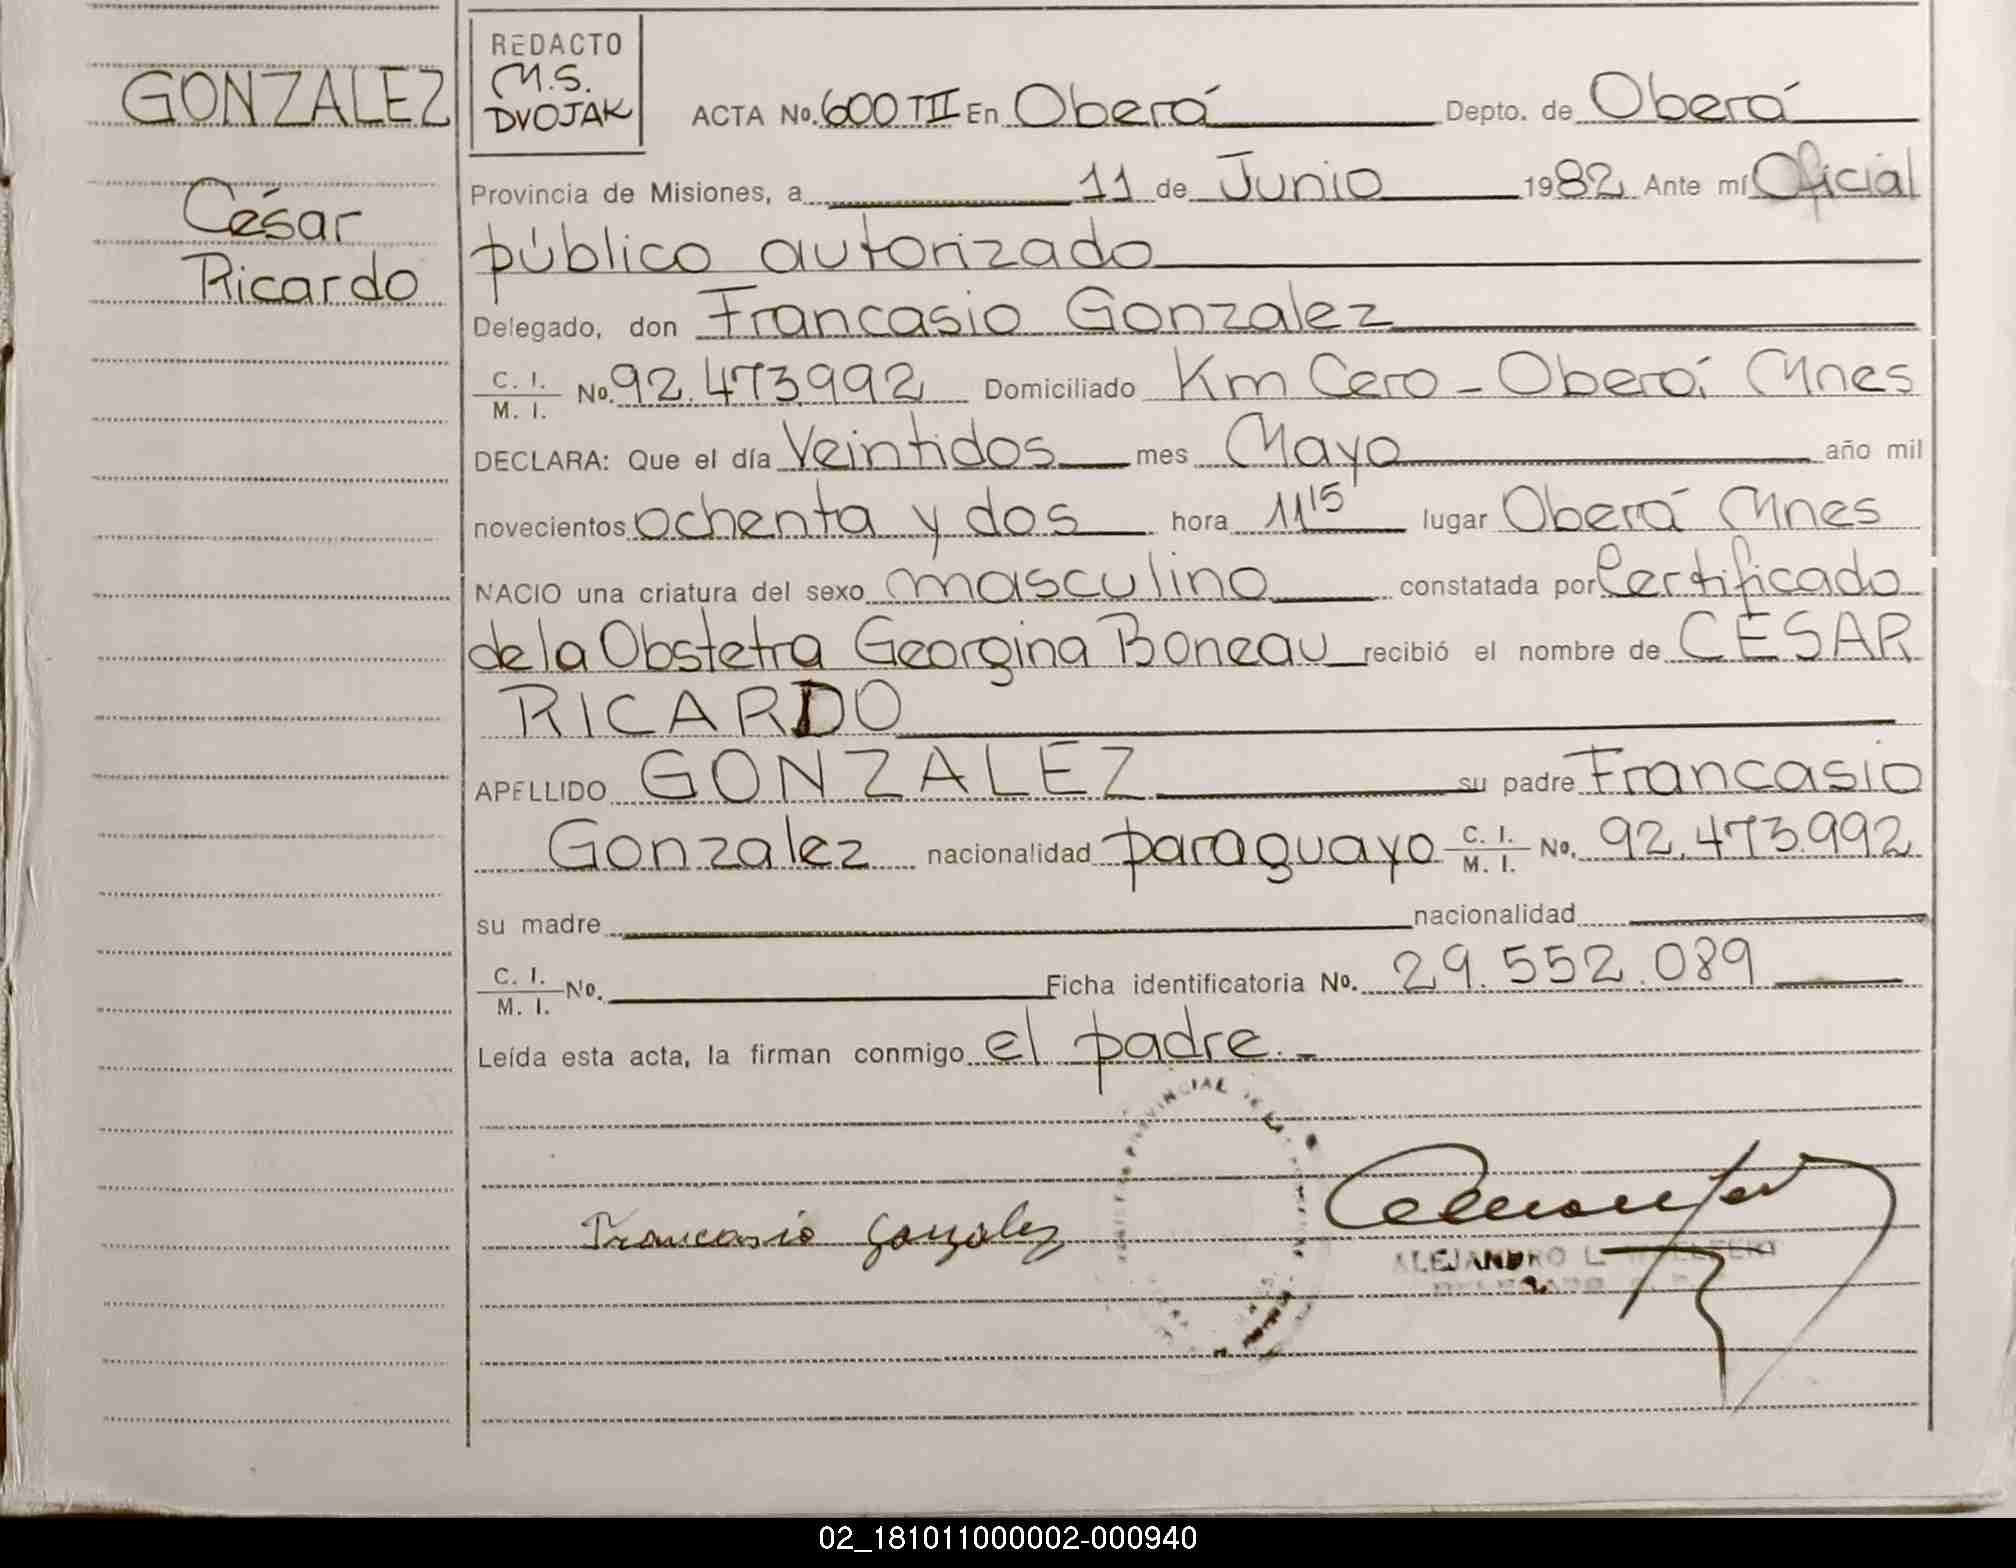 GONZALEZ
César
Ricardo
REDACTO
M.S.
DVOJAK
ACTA No. 600 TII En Oberá Depto. de Oberá
Provincia de Misiones, a 11 de Junio 1982 Ante mí Oficial
público autorizado
Delegado, don Francasio Gonzalez
C. I. / M. I. No. 92.473.992 Domiciliado Km Cero - Oberá Mnes
DECLARA: Que el día Veintidos mes Mayo año mil
novecientos ochenta y dos hora 11 15 lugar Oberá Mnes
NACIO una criatura del sexo masculino constatada por Certificado
de la Obstetra Georgina Boneau recibió el nombre de CESAR
RICARDO
APELLIDO GONZALEZ su padre Francasio
Gonzalez nacionalidad paraguayo C. I. / M. I. No. 92.473.992
su madre nacionalidad
C. I. / M. I. No. Ficha identificatoria No. 29.552.089
Leída esta acta, la firman conmigo el padre.-
Francasio Gonzalez
ALEJANDRO L.
02_181011000002-000940